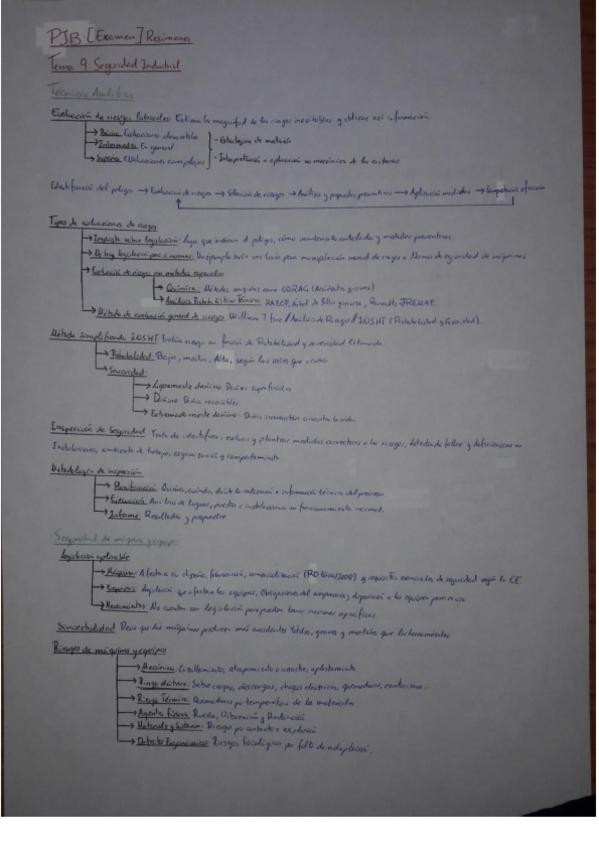 PIB: [Examen] Resúmenes
Tema 9 Seguridad Industrial
Técnicas Analíticas
Evaluación de riesgos laborales: Estima la magnitud de los riesgos inevitables y obtiene así información.
Básica: Evaluaciones elementales
Intermedio: En general
Superior: Evaluaciones complejas
- Estrategias de medición
- Interpretación o aplicación no mecánica de los criterios
Identificación del peligro → Evaluación de riesgos → Valoración de riesgos → Análisis y propuestas preventivas → Aplicación medidas →
Tipos de evaluaciones de riesgo
Impuesta sobre legislación: Leyes que indican el peligro, cómo controlado y medidas preventivas.
No hay legislación pero sí normas: Un ejemplo sería una Guía para manipulación manual de cargas o Normas de seguridad de máquinas
Evaluación de riesgos por métodos especiales
Química: Métodos como CORAG (Accidentes graves)
Análisis Probabilístico HAZOP, Árbol de fallos
Método de evaluación general de riesgo: William T. Fine / Análisis de Riesgo / INSHT (Probabilidad y Severidad).
Método simplificado INSHT riesgo en función de Probabilidad y severidad
Probabilidad: Baja, media, Alta, según las veces que ocurra
Severidad:
Ligeramente dañino: Daños superficiales
Dañino: Daños
Extremadamente dañino: Daños
Inspección de Seguridad: Trata de identificar, evaluar y plantear medidas correctoras a los riesgos, detectando fallos y deficiencias en
Instalaciones, ambiente de trabajo, organización y comportamiento
Metodología de inspección
Planificación: Quién, cuándo, dónde la realización e información técnica del proceso
Ejecución: Análisis de lugares, puestos e instalaciones en funcionamiento normal.
Informe: Resultados y propuestas
Seguridad de máquinas y equipos
Legislación aplicable
Máquinas: Afecta a su diseño, fabricación, comercialización (RD 1644/2008) y requisitos esenciales de seguridad según la CE
Legislación que afecta a los equipos, Obligaciones del empresario,
Herramientas: No cuentan con legislación pero pueden tener normas específicas
Siniestralidad: Decir que las máquinas producen más accidentes totales, graves y mortales que las herramientas
Riesgos de máquinas y equipos
Mecánico: Cizallamiento, atrapamiento o arrastre, aplastamiento
Riesgo eléctrico: Sobrecargas, descargas, choques eléctricos, quemaduras,
Riesgo Térmico: Quemaduras por temperatura de los materiales
Agentes físicos: Ruido, Vibración y Radiación
Materiales y Sustancias: Riesgo por contacto o explosión
Defecto Ergonómico: Riesgos fisiológicos por falta de adaptación.